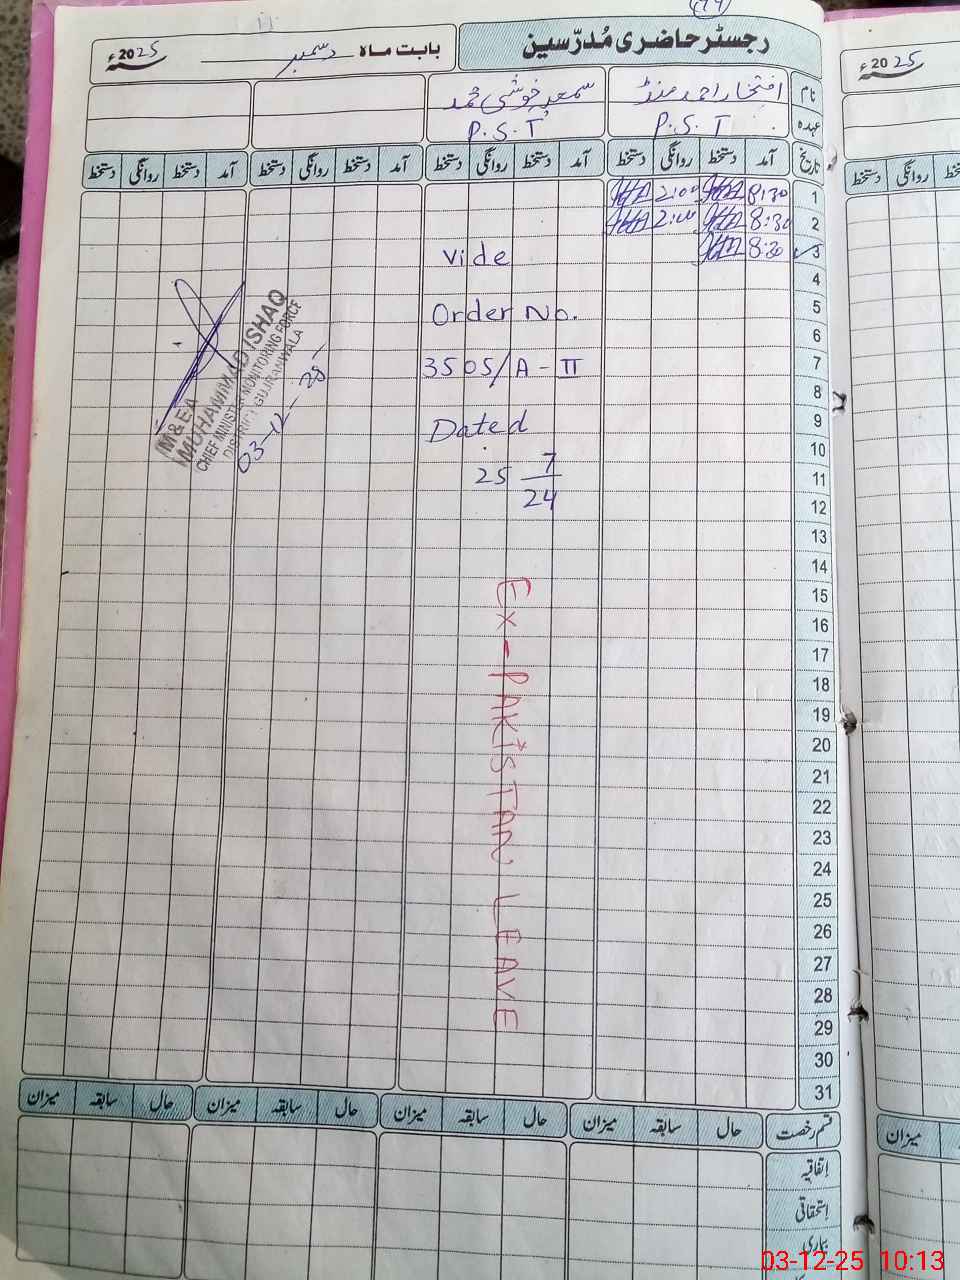 رجسٹر حاضری مُدرّسین
بابت ماہ دسمبر 2025ء
نام افتخار احمد منڈ سمعیہ خوشی محمد
عہدہ P.S.T P.S.T
تاریخ آمد دستخط روانگی دستخط آمد دستخط روانگی دستخط آمد دستخط روانگی دستخط آمد دستخط روانگی دستخط
1 8:30 2:00
2 8:30 2:00
3 8:30
4
5
6
7
8
9
10
11
12
13
14
15
16
17
18
19
20
21
22
23
24
25
26
27
28
29
30
31
Vide
Order No.
3505/A-II
Dated
25 7/24
EX-PAKISTAN LEAVE
M&EA
MUHAMMAD ISHAQ
CHIEF MINISTER MONITORING FORCE
DISTRICT GUJRANWALA
03-12-25
قسم رخصت حال سابقہ میزان حال سابقہ میزان حال سابقہ میزان حال سابقہ میزان
اتفاقیہ
استحقاقی
بیماری
2025ء
دستخط روانگی
میزان
03-12-25 10:13